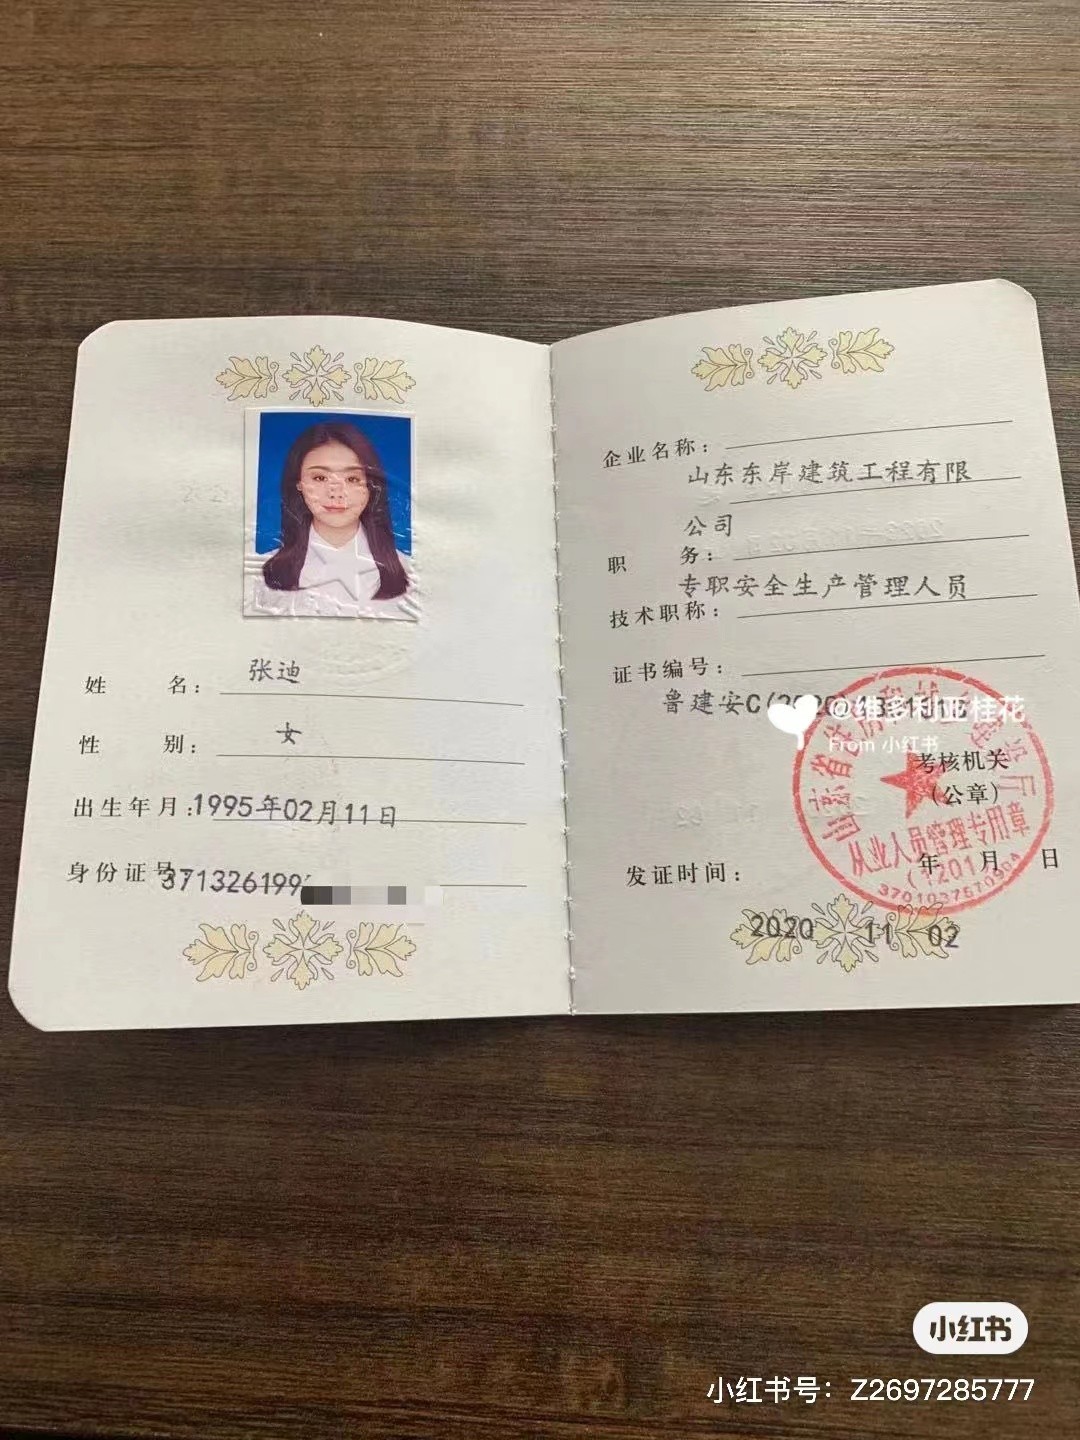 姓 名：
张迪
性 别：
女
出生年月：
1995年02月11日
身份证号
371326199
企业名称：
山东东岸建筑工程有限
公司
职 务：
专职安全生产管理人员
技术职称：
证书编号：
鲁建安C
@维多利亚桂花
From 小红书
考核机关
（公章）
从业人员管理专用章
发证时间：
年 月 日
2020 11 02
小红书
小红书号：Z2697285777